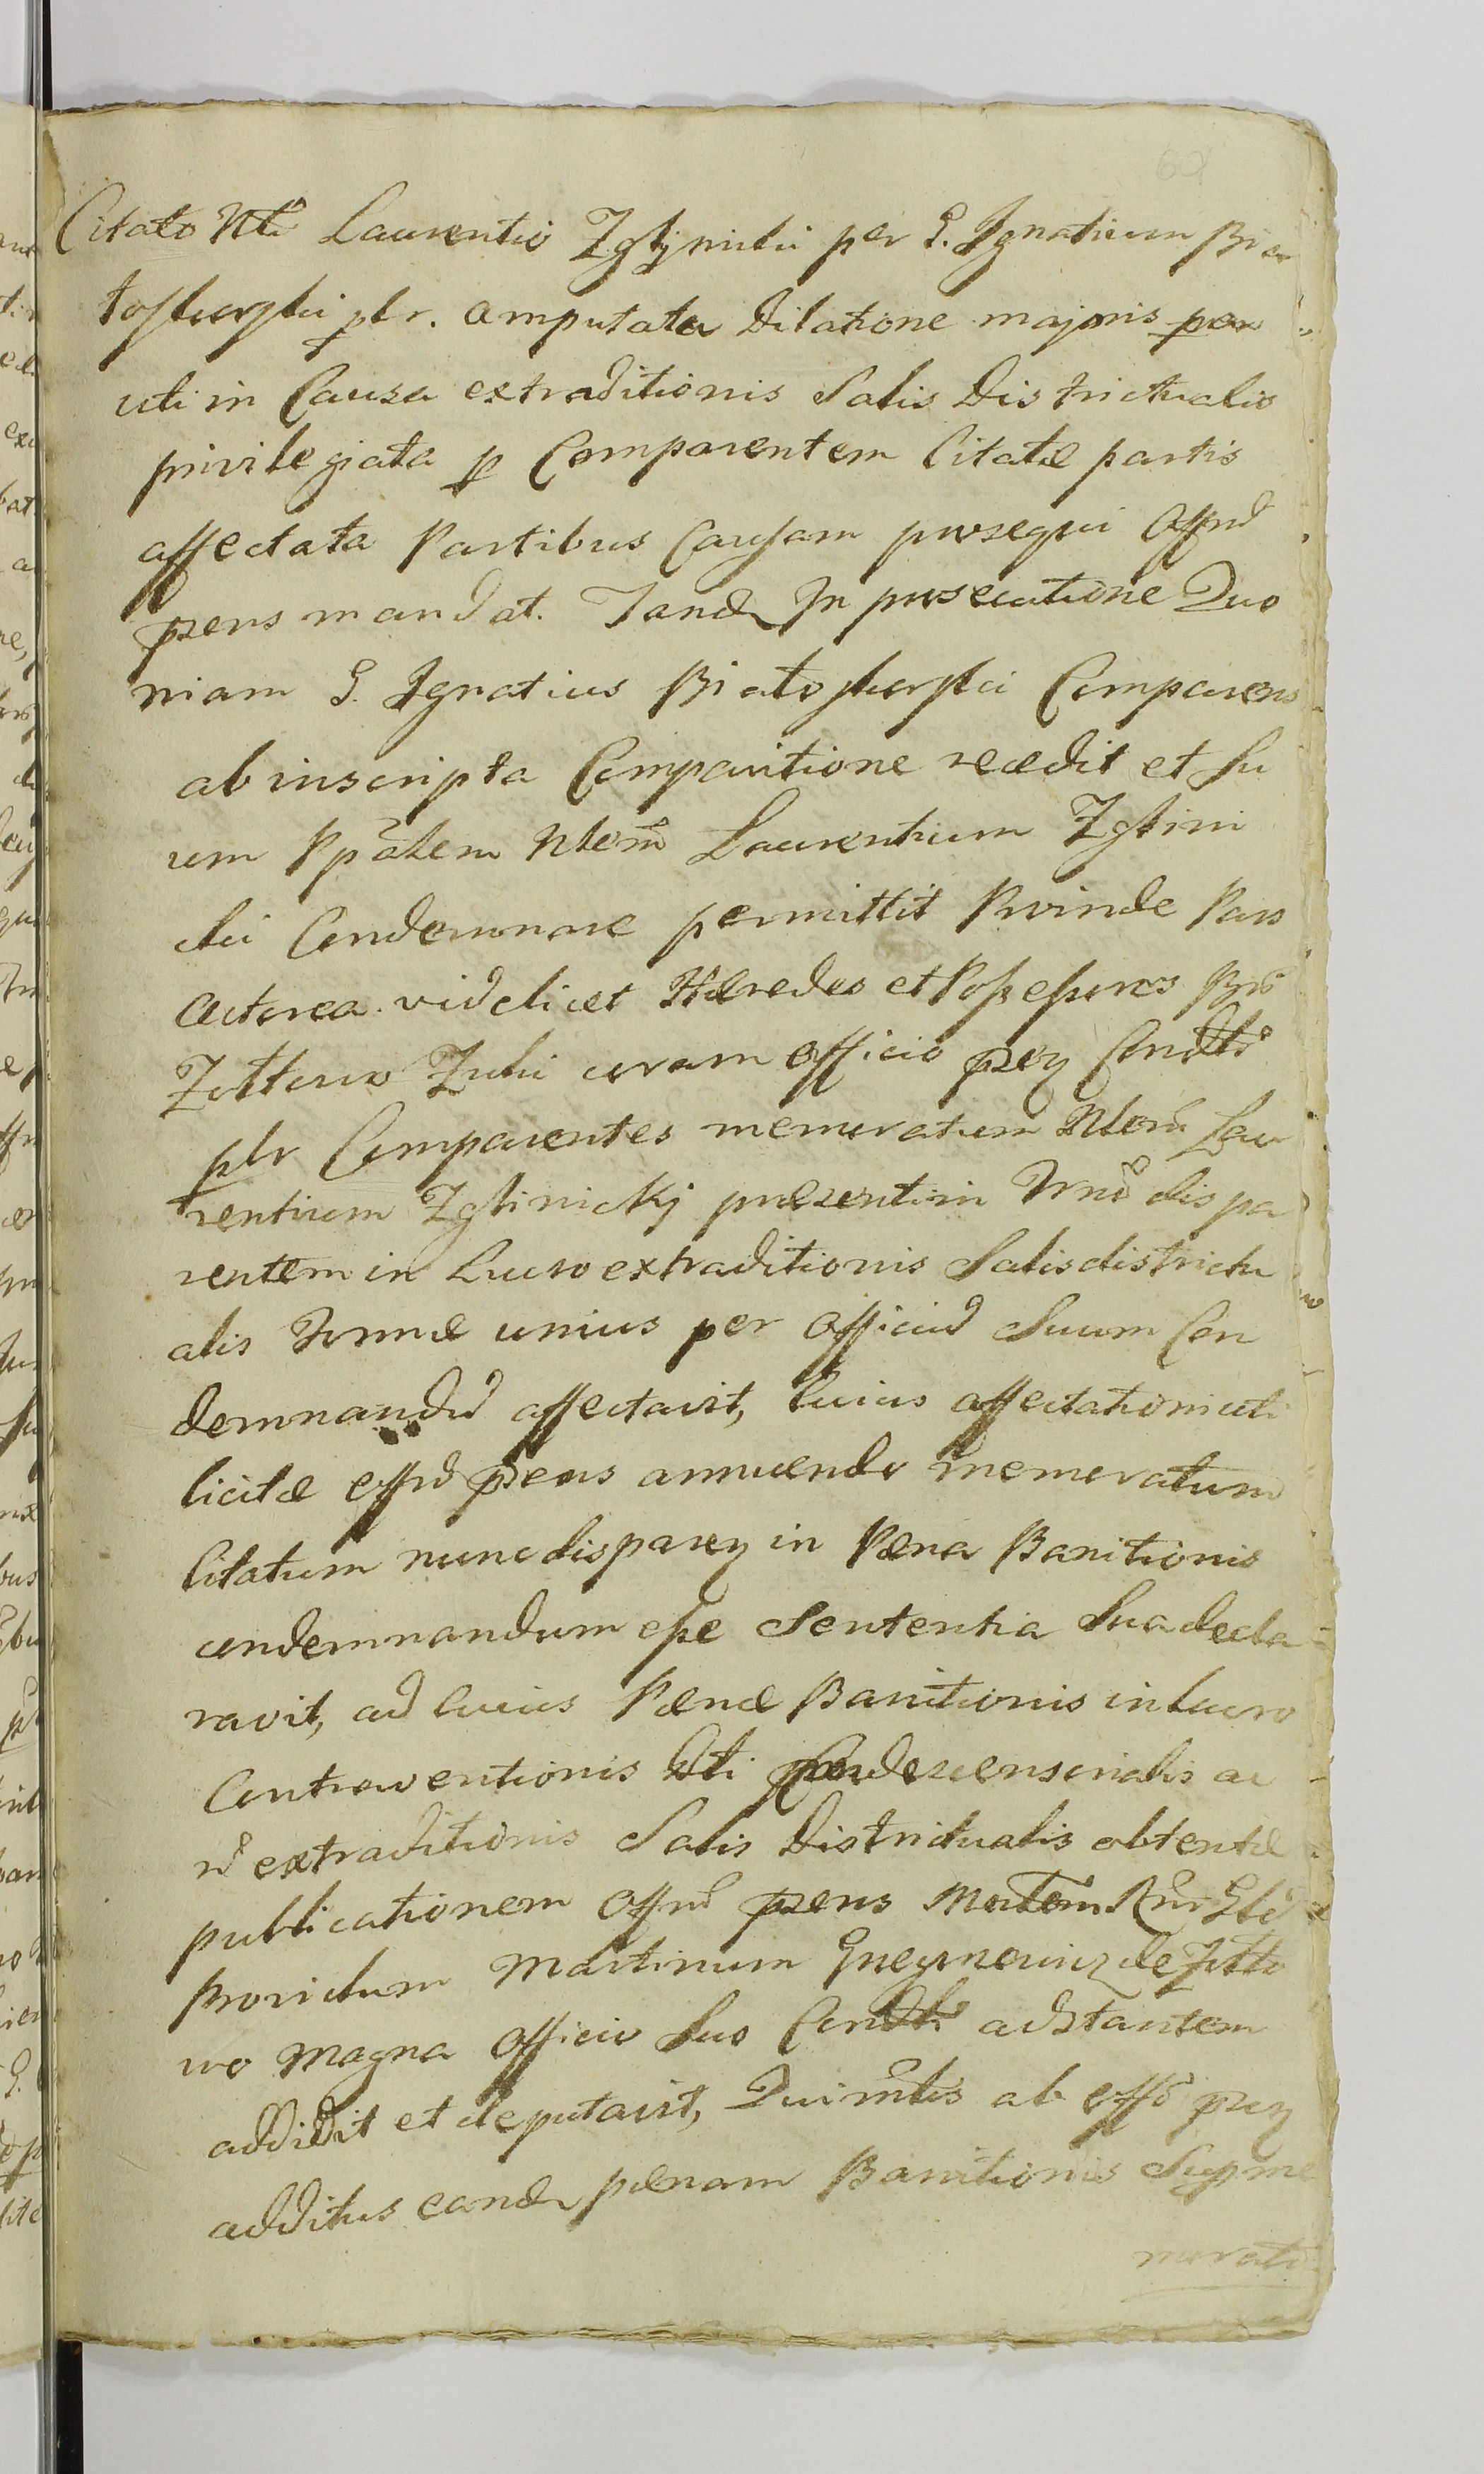 Citato Nli Laurentio Zglynicki per G. Ignatium Bia
toskorski plr. amputata Dilatione majoris
uti in Causa extraditionis Salis Districtualis
privilegiata p Comparentem Citatæ partis
affectata Partibus Causam prosequi Offm
prens mandat. Tand In prosecutione Quo
niam G. Ignatius Biatoskorski Comparens
ab inscripta Comparitione recedit et Su
um Ppalem Nlem Laurentium Zglini
cki Condemnare permittit Proinde Pars
Actorea videlicet Hæredes et Possessores
Zottowo coram officio prey
plr Comparentes memoratum Nlem Lau
rentium Zglinicky præsentim dispa
rentem in Lucro extraditionis Salis districtu
alis Tonnæ unius per Officiu Suum Con
demnandu affectavit, Cuius affectationi uti
licitæ Offm prens annuendo memoratum
Citatum nunc disparey in Pæna Banitionis
condemnandum esse Sententia Sua decla
ravit, ad Cuius Pænæ Banitionis in Lucro
Contraventionis Dti Condescensorialis ac
n extraditionis Salis Districtualis obtentæ
publicationem Offm prens
Providum Martinum de Zotto
wo Magna Officio Suo adstantem
addidit et deputavit, Qui mtris ab offo prey
additus eand pænam Banitionis Supme
morato